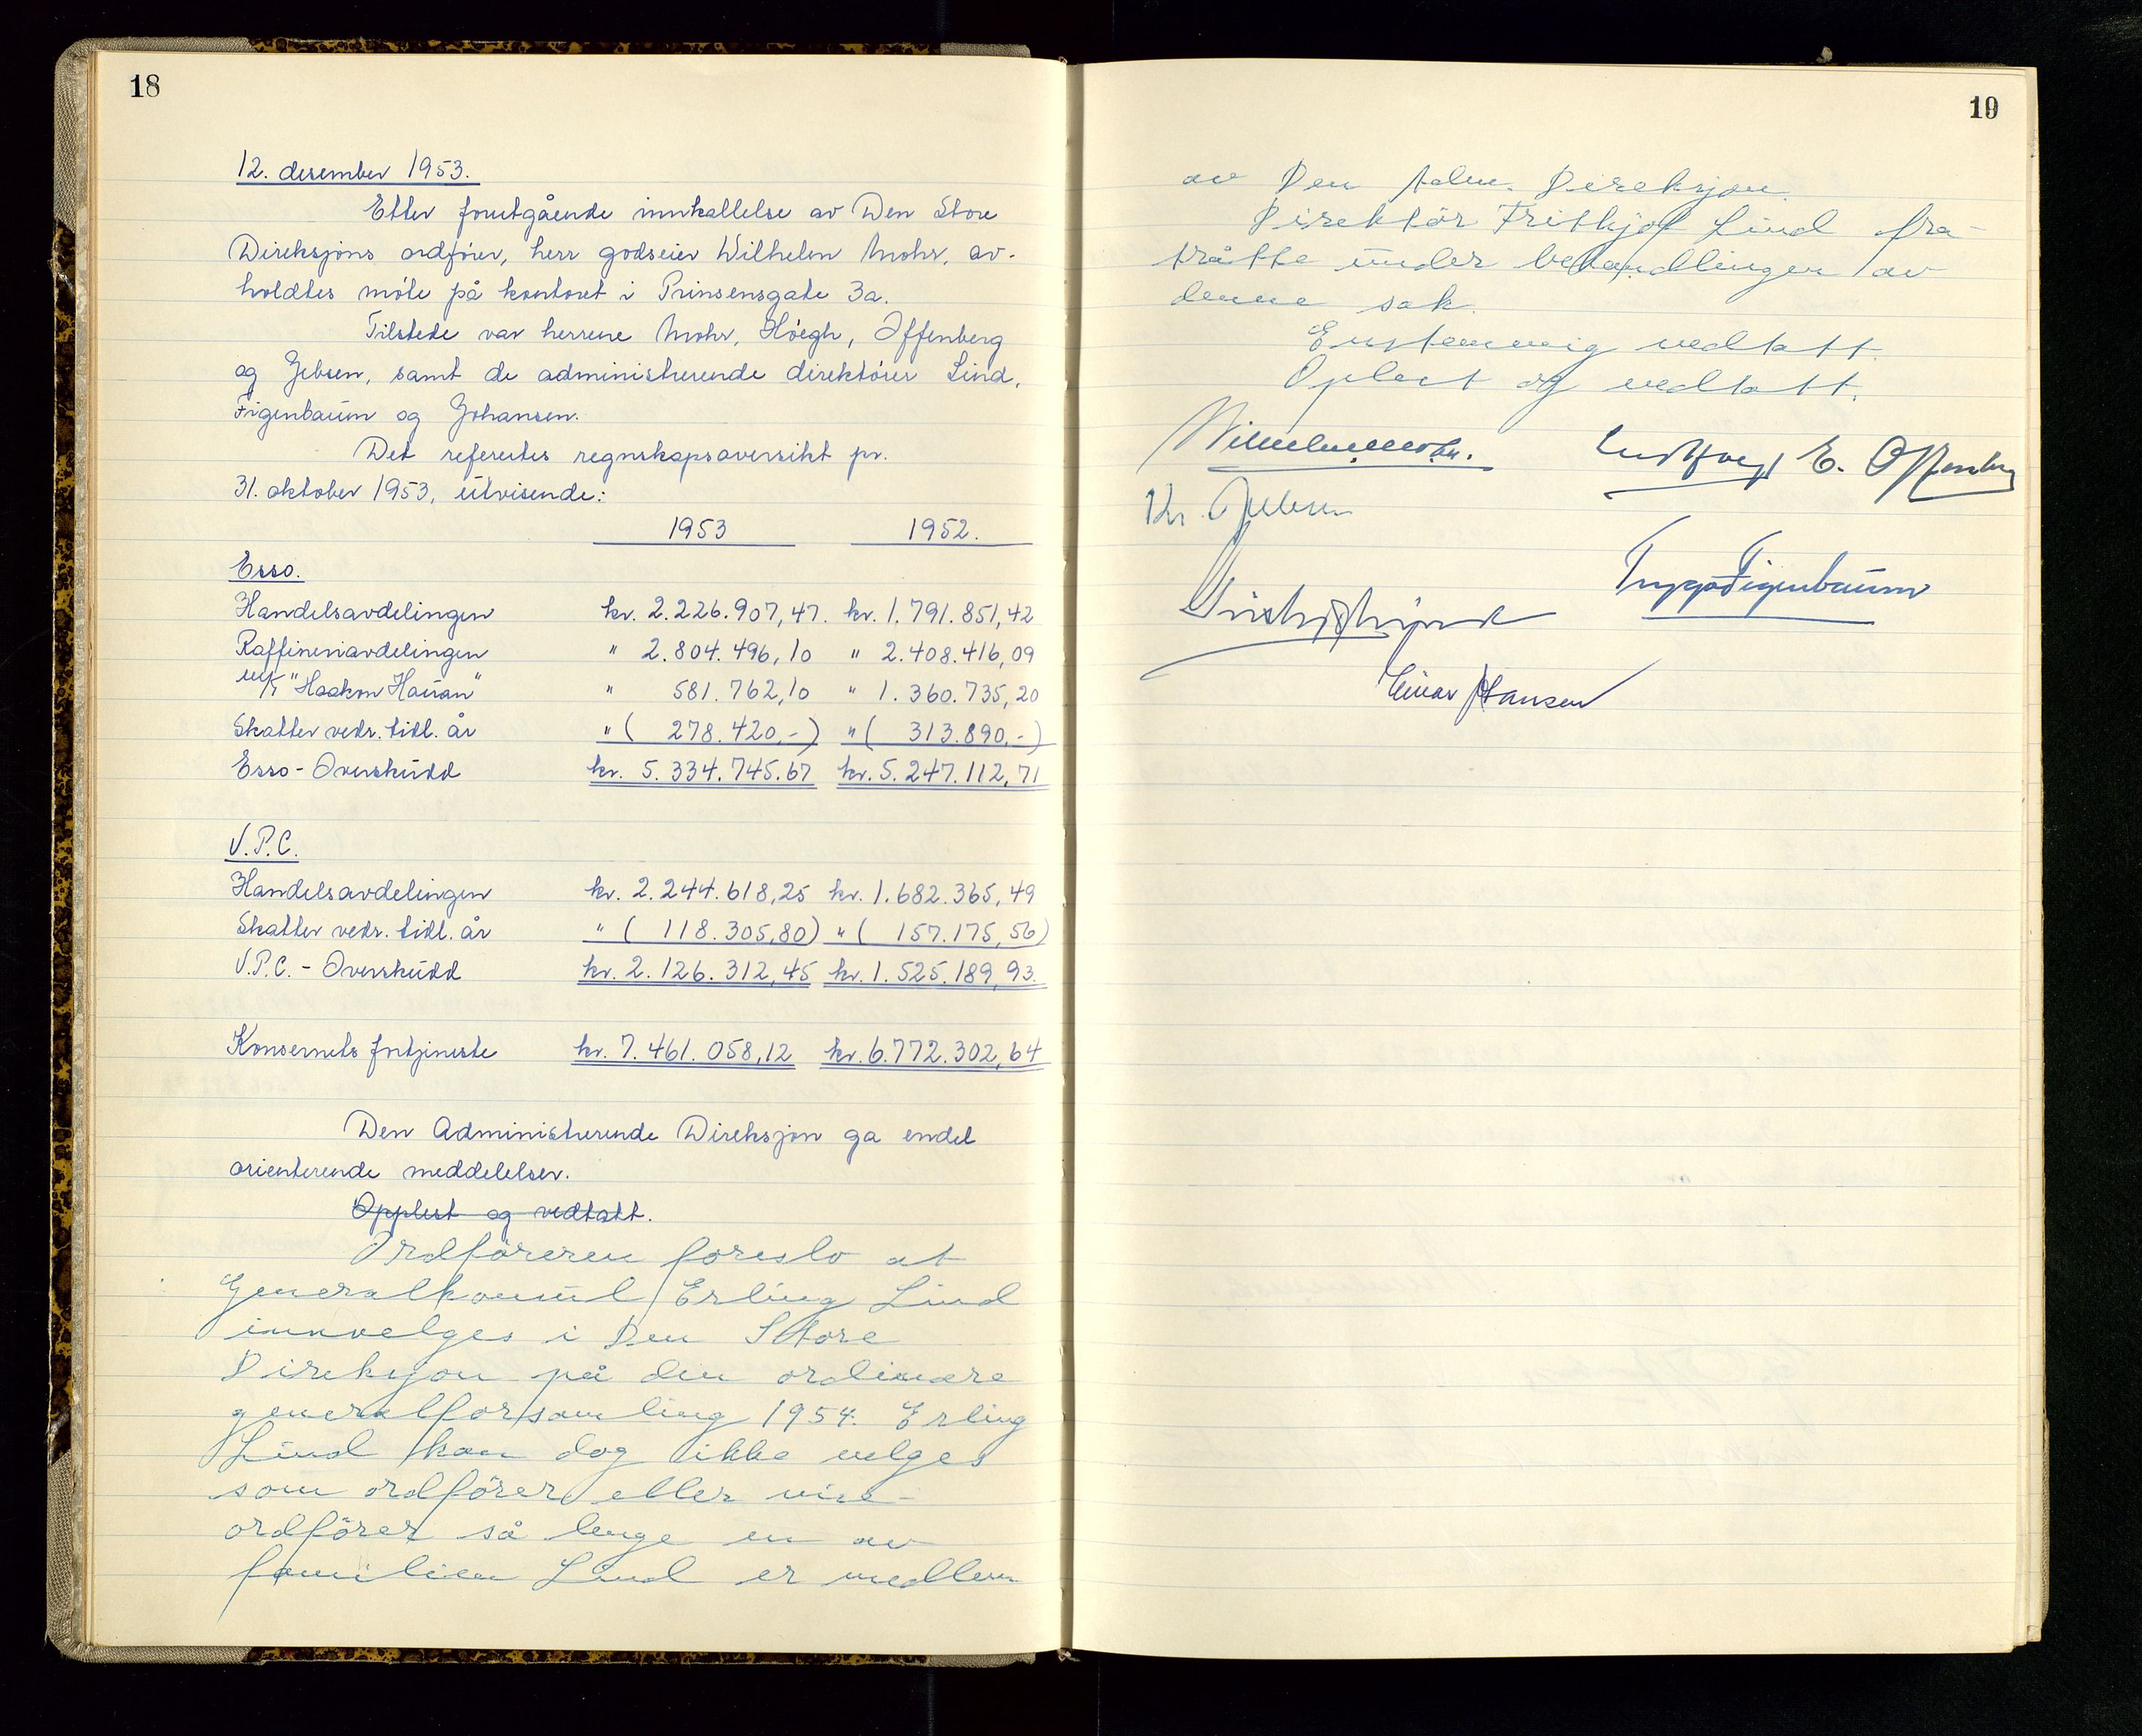 18
12. desember 1953.
Etter forutgående innkallelse av Den Store
Direksjons ordfører, herr godseier Wilhelm Mohr, av-
holdtes møte på kontoret i Prinsensgate 3a.
Tilstede var herrene Mohr, Höegh, Offenberg
og Jebsen, samt de administrerende direktører Lind,
Figenbaum og Johansen.
Det refertes regnskapsoversikt pr.
31. oktober 1953, utvisende:
1953 1952.
Esso.
Handelsavdelingen kr. 2.226.907,47. kr. 1.791.851,42
Raffineriavdelingen " 2.804.496,10 " 2.408.416,09
M/T "Haakon Hauan" " 581.762,10 " 1.360.735,20
Skatter vedr. tidl. år " ( 278.420,-) " ( 313.890,-)
Esso-Overskudd kr. 5.334.745.67 kr. 5.247.112,71
V.P.C.
Handelsavdelingen kr. 2.244.618,25 kr. 1.682.365,49
Skatter vedr. tidl. år " ( 118.305,80) " ( 157.175,56)
V.P.C. - Overskudd kr. 2.126.312,45 kr. 1.525.189,93.
Konsernets fortjeneste kr. 7.461.058,12 kr. 6.772.302,64
Den Administrerende Direksjon ga endel
orienterende meddelelser.
Opplest og vedtatt.
Ordföreren foreslo at
Generalkonsul Erling Lind
innvelges i Den Store
Direksjon på den ordinære
generalforsamling 1954. Erling
Lind kan dog ikke velges
som ordförer eller vise-
ordförer så lenge en av
familien Lind er medlem
19
av Den Adm. Direksjon.
Direktör Frithjof Lind fra-
trådte under behandlingen av
denne sak.
Enstemmig vedtatt.
Oplest og vedtatt.
Wilhelm Mohr. E. Offenberg
Kr. Jebsen
Trygve Figenbaum
Einar Johansen